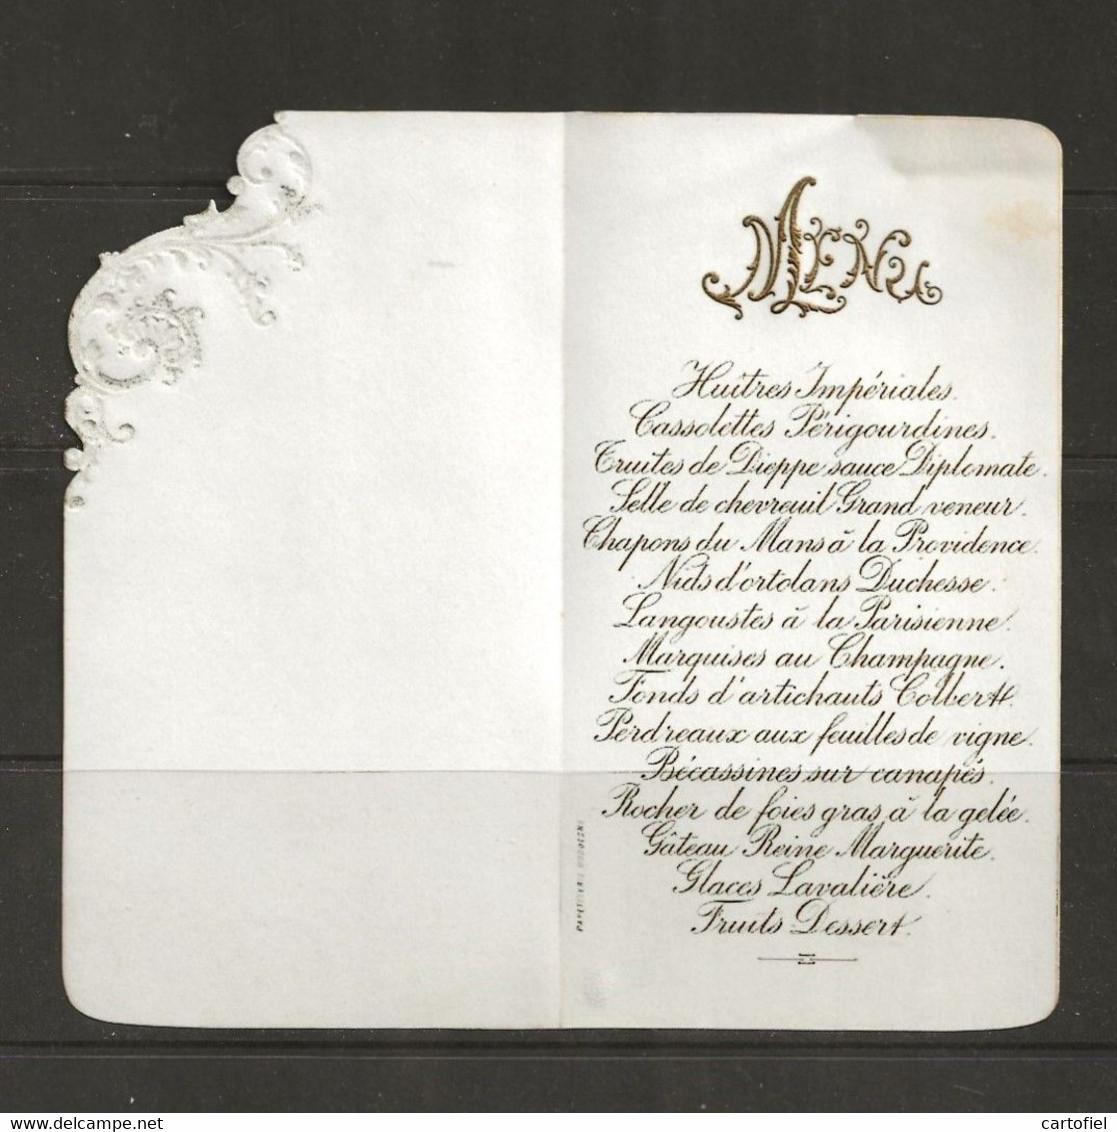 Menu
Huîtres Impériales.
Cassolettes Périgourdines.
Truites de Dieppe sauce Diplomate.
Selle de chevreuil Grand veneur.
Chapons du Mans à la Providence.
Nids d'ortolans Duchesse.
Langoustes à la Parisienne.
Marquises au Champagne.
Fonds d'artichauts Colbert.
Perdreaux aux feuilles de vigne.
Bécassines sur canapés.
Rocher de foies gras à la gelée.
Gâteau Reine Marguerite.
Glaces Lavalière.
Fruits Dessert.
PAPETERIE
www.delcampe.net
cartofiel